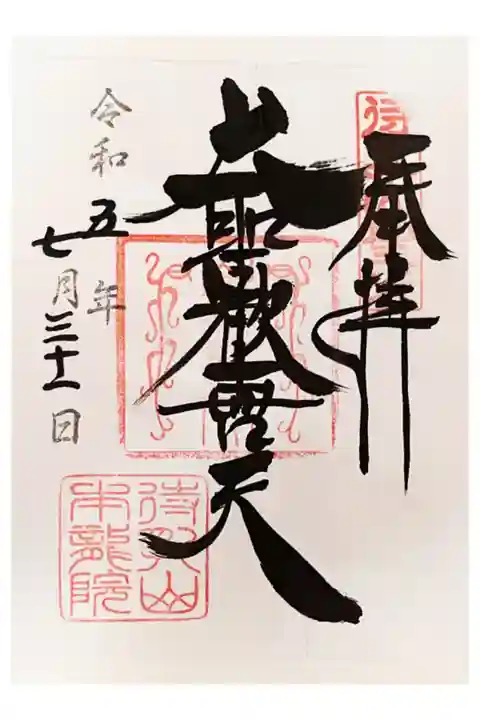 奉拝
大聖歓喜天
令和五年
七月三十一日
待乳山
本龍院